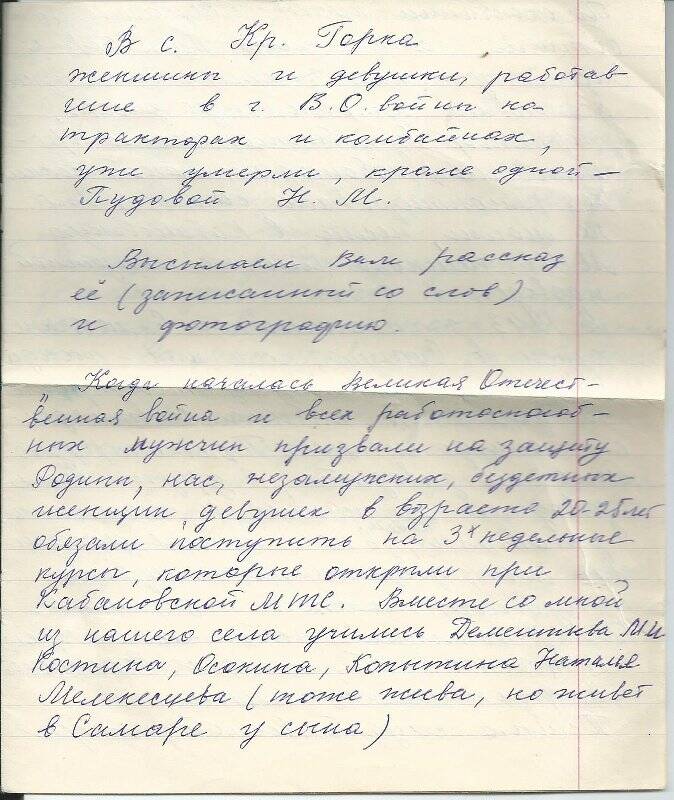 В с. Кр. Горка
женщины и девушки, работав
шие в г. В.О. войны на
тракторах и комбайнах,
уже умерли, кроме одной –
Пудовой Н. М.
Высылаем Вам рассказ
её (записанный со слов)
и фотографию.
Когда началась Великая Отечест-
венная война и всех работоспособ-
ных мужчин призвали на защиту
Родины, нас, незамужних, бездетных
женщин, девушек в возрасте 20-25 лет
обязали поступить на 3х недельные
курсы, которые открыли при
Кабановской МТС. Вместе со мной
из нашего села учились Дементьева М.И
Костина, Осокина, Копытина Наталья
Мелекесцева (тоже жива, но живет
в Самаре у сына)